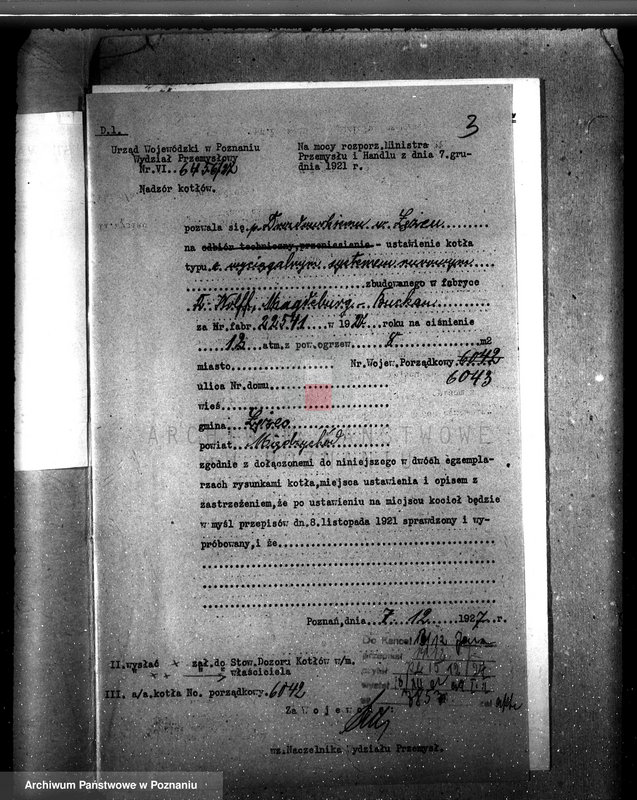 D.1.
3
Urząd Wojewódzki w Poznaniu
Wydział Przemysłowy
Nr.VI..
Nadzór kotłów.
Na mocy rozporz.Ministra
Przemysłu i Handlu z dnia 7.gru-
dnia 1921 r.
pozwala się p. w
na odbiór techniczny,przeniesienie - ustawienie kotła
typu z wyciągalnym systemem rurowym
zbudowanego w fabryce
R. Wolff, Magdeburg - Buckau
za Nr.fabr. 22541 w 19 roku na ciśnienie
12 atm.z pow.ogrzew. m2
miasto Nr.Wojew.Porządkowy 6042
6043
ulica Nr.domu
wieś
gmina
powiat Międzychód
zgodnie z dołączonemi do niniejszego w dwóch egzempla-
rzach rysunkami kotła,miejsca ustawienia i opisem z
zastrzeżeniem,że po ustawieniu na miejscu kocioł będzie
w myśl przepisów dn.8.listopada 1921 sprawdzony i wy-
próbowany,i że
Poznań,dnia 7. 12. 1927 r.
Do Kancel.
II.wysłać + zał.do Stow.Dozoru Kotłów w/m.
++ właściciela
III. a/a.kotła No. porządkowy. 6042
Za Wojewodę:
wz.Naczelnika Wydziału Przemysł.
ARCHIWUM PAŃSTWOWE
W POZNANIU
Archiwum Państwowe w Poznaniu